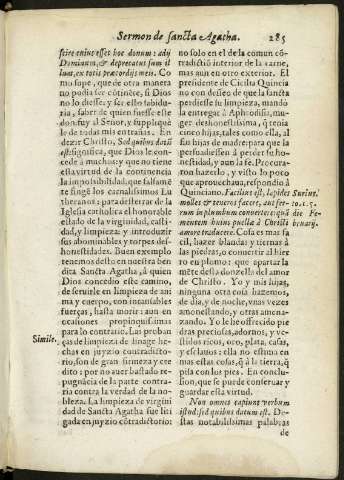 Sermon de sancta Agatha. 285
scire enim esset hoc donum: adij
Dominum, & deprecatus sum il
lum, ex totis præcordijs meis. Co
mo supe, que de otra manera
no podia ser cōtinēte, si Dios
no lo diesse: y ser esto sabidu
ria, saber de quien fuesse este
don. fuy al Señor, y suppliqué
le de todas mis entrañas. En
dezir Christo, Sed quibus datū
est: significa, que Dios le con-
cede a muchos: y que no tiene
esta virtud de la continencia
la impossibilidad, que falsamē
te fingē los carnalissimos Lu
theranos: para desterrar de la
Iglesia catholica el honorable
estado de la virginidad, casti-
dad, y limpieza: y introduzir
sus abominables y torpes des-
honestidades. Buen exemplo
tenemos desto en nuestra ben
dita Sancta Agatha, à quien
Dios concedio este camino,
de seruirle en limpieza de ani
ma y cuerpo, con incansables
fuerças, hasta morir: aun en
ocasiones propinquissimas
para lo contrario. Las proban
Simile.
ças de limpieza de linage he-
chas en juyzio contradicto-
rio, son de gran firmeza y cre
dito: por no auer bastado re-
pugnācia de la parte contra-
ria contra la verdad de la no-
bleza. La limpieza de virgini
dad de Sancta Agatha fue liti
gada en juyzio cōtradictorio:
no solo en el de la comun cō-
tradictiō interior de la carne,
mas aun en otro exterior. El
presidente de Cicilia Quincia
no con desseo de que la sancta
perdiesse su limpieza, mandò
la entregar à Aphrodisia, mu-
ger deshonestissima, q̃ tenia
cinco hijas, tales como ella, al
fin hijas de madre: para que la
persuadiessen à perder su ho-
nestidad, y aun la fe. Procura-
ron hazerlo, y visto lo poco
que aprouechaua, respondio à
Quinciano. Facilius est, lapides
Surius.
molles & teneros facere, aut fer-
to. 1. 5.
rum in plumbum conuertere: quā
die Fe-
mentem huius puellæ à Christi
bruarij.
amore traducere. Cosa es mas fa
cil, hazer blandas y tiernas à
las piedras, o conuertir al hier
ro en plomo: que apartar la
mēte desta donzella del amor
de Christo. Yo y mis hijas,
ninguna otra cosa hazemos,
de dia, y de noche, vnas vezes
amonestando, y otras amena-
zando. Yo le he offrecido pie
dras preciosas, adornos, y ve-
stidos ricos, oro, plata, casas,
y esclauos: ella no estima en
mas estas cosas, q̃ à la tierra, q̃
pisa con los pies. En conclu-
sion, que se puede conseruar y
guardar esta virtud.
Non omnes capiunt verbum
istud: sed quibus datum est. De-
stas notabilissimas palabras
de